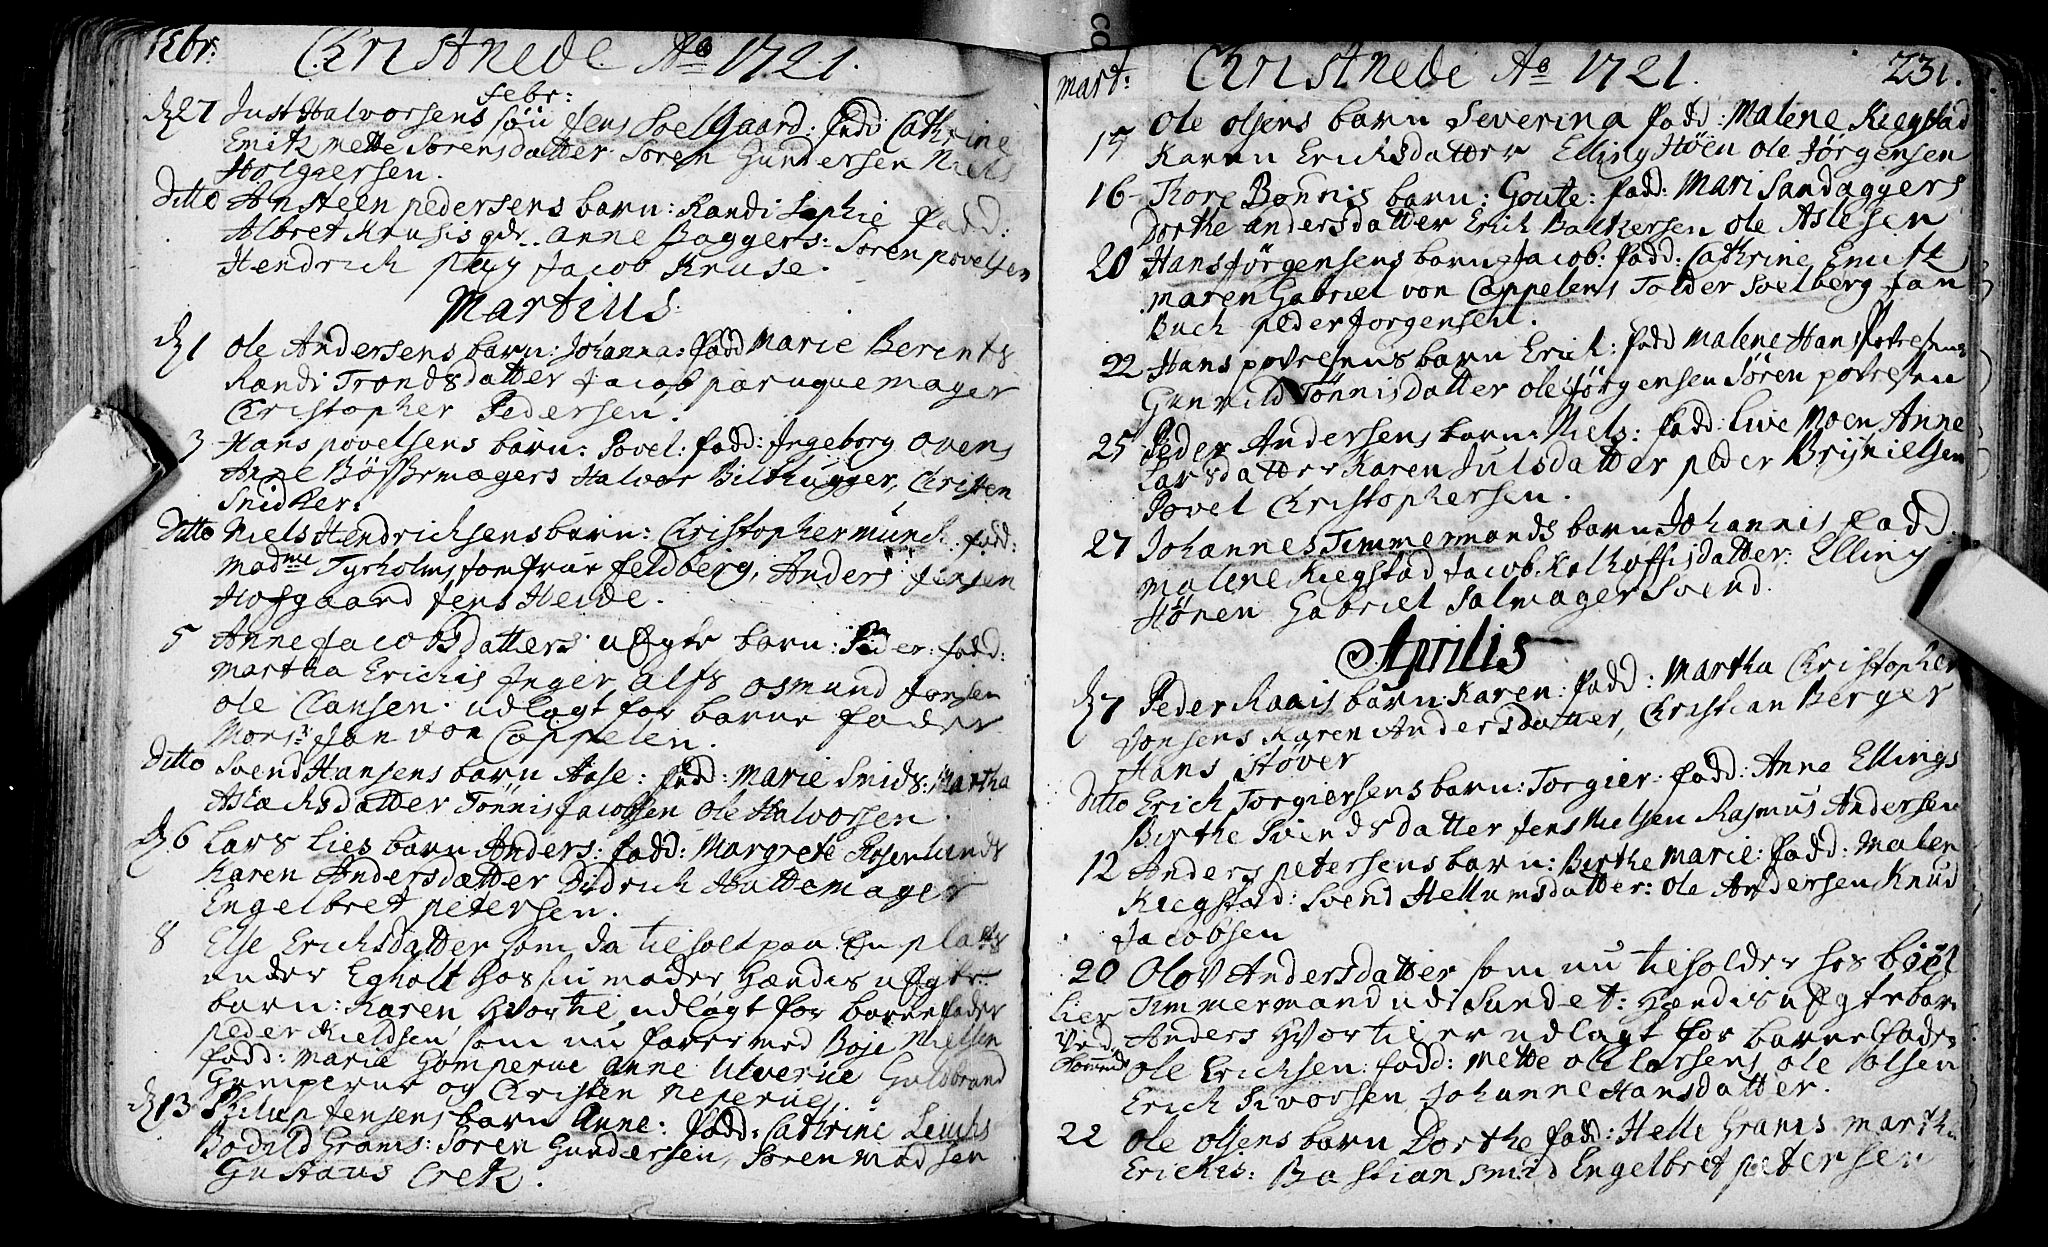 Febr: Christnede Ao 1721.
Febr:
D 27 Just Halvorsens søn Jens Soelgaard: fadd Cathrine
Smitz Mette Sørensdatter Søren Gundersen Niels
Holgersen.
Ditto Ansteen pedersens barn: Randi Sophie fadd:
Albret Krusis Anne Baggers: Søren povelsen
Hendrich Jacob Kruse.
Martius
D 1 Ole Andersens barn: Johanna: fadd Marie Berents
Randi Trondsdatter Jacob paruquemager
Christopher Pedersen.
3 Hans povelsens barn: Povel: fadd: Ingeborg ovens
Anne Bøssemagers Halvor Bilthugger, Christen
Snidker.
Ditto Niels Hendrichsens barn: Christopher Munch fadd:
Madme Tyrholms Jomfrue Feldberg, Anders Jensen
Hofgaard Jens Heide.
5 Anne Jacobsdatters uægte barn: Peder: fadd:
Martha Erichis Inger Alfs Osmund Jonsen
Ole Clausen. udlagt for barne fader
Monsr Jan von Cappelen.
Ditto Svend Hansens barn Aase: fadd: Marie Smids: Martha
Aslachsdatter Tønnis Jacobsen Ole Halvorsen.
D 6 Lars Lies barn Anders: fadd: Margrete Rosenlunds
Karen Andersdatter Didrich Hattemager
Engelbret petersen.
8 Else Erichsdatter som da tilholt paa En plads
under Egholt hos sin moder hendis uægte
barn: Karen hvortil udlagt for barnefader
peder Kieldsen som nu farer med Boje Nielsen
fadd: Marie Gomperue Anne Ulverue Guldbrand
Gumperue og Christen neperue
D 13 Philup Jensens barn Anne: fadd: Cathrine
Bodild Grams: Søren Gundersen, Søren Madsen
Gustavus Crek.
Mart: Christnede Ao 1721. 231.
15 Ole Olsens barn Severina fadd: Malene Kiegstad
Karen Erichsdatter Elling Høen Ole Jørgensen
16 Thore Bonnis barn: Goute: fadd: Mari Sandaggers
Dorthe Andersdatter Erich Baltzersen Ole Aslesen
20 Hans Jørgensens barn Jacob: fadd: Cathrine Smitz
Maren Gabriel von Cappelens Tolder Svelberg Jan
Buch peder Jorgensen.
22 Hans povelsens barn Erich: fadd Malene Hans Povelsens
Gunnild Tønnisdatter Ole Jørgensen Søren povelsen
25 Peder Andersens barn: Niels: fadd: Live Moen Anne
Larsdatter Karen Julsdatter peder Brynielsen
Povel Christophersen.
27 Johannes Timmermands barn Johannis fadd
Malene Kiegstad Jacob Kalhoffisdatter: Elling
Hønen Gabriel Salmager Svend.
Aprilis
D 7 Peder Raais barn Karen: fadd: Martha Christopher
Jonsens Karen Andersdatter, Christian Berger
Hans Støver
Ditto Erich Torgiersens barn: Torgier: fadd: Anne Ellings
Birthe Svendsdatter Jens Nielsen Rasmus Andersen
12 Anders petersens barn: Birthe Marie: fadd: Malen
Kiegstad: Svend Hellumsdatter: Ole Andersen Knud
Jacobsen
20 Olov Andersdatter som nu tilholder hos
Timmermand udi Sundet: hendis uægte barn
lier
Anders hvortil er udlagt for barnefader
Ole Erichsen: fadd: Mette Ole Larsens Ole Olsen
Erich Sivorsen Johanne Hansdatter.
22 Ole Olsens barn Dorthe fadd: Helle Grams Martha
Erichis: Bastian Smid Engelbret petersen